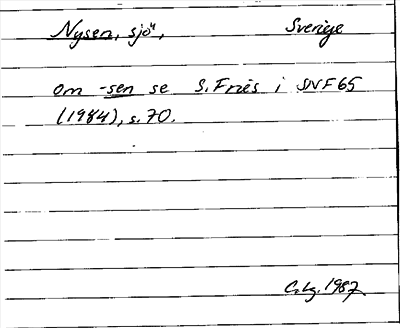 Nysen, sjö, Sverige
om -sen se S. Fries i SNF 65
(1984), s. 70.
1987